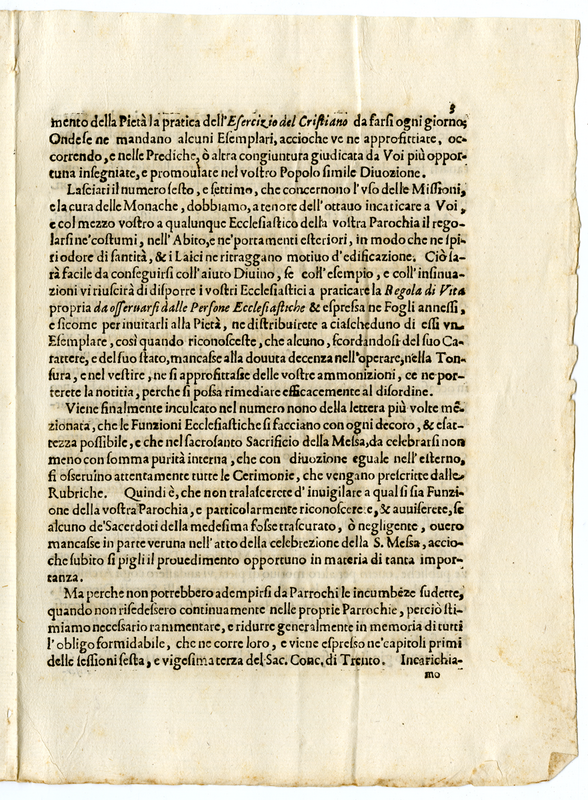 3
mento della Pietà la pratica dell'Esercizio del Cristiano da farsi ogni giorno;
Ond​ese ne mandano alcuni Esemplari, accioche ve ne approfittiate, oc-
correndo, e nelle Prediche, ò altra congiuntura giudicata da Voi più oppor-
tuna insegniate, e promouiate nel vostro Popolo simile Diuozione.
Lasciati il numero sesto, e settimo, che concernono l'vso delle Missioni,
e la cura delle Monache, dobbiamo, a tenore dell'ottauo incaricare a Voi,
e col mezzo vostro a qualunque Ecclesiastico della vostra Parochia il rego-
larsi ne'costumi, nell'Abito, e ne'portamenti esteriori, in modo che ne spi-
ri odore di santità, & i Laici ne ritraggano motiuo d'edificazione. Ciò sa-
rà facile da conseguirsi coll'aiuto Diuino, se coll'esempio, e coll'insinua-
zioni vi riuscirà di disporre i vostri Ecclesiastici a praticare la Regola di Vita
propria da osseruarsi dalle Persone Ecclesiastiche & espressa ne Fogli annessi,
e sicome per inuitarli alla Pietà, ne distribuirete a ciascheduno di essi vn
Esemplare, così quando riconosceste, che alcuno, scordandosi del suo Ca-
rattere, e del suo stato, mancasse alla douuta decenza nell'operare, nella Ton-
sura, e nel vestire, ne si approfittasse delle vostre ammonizioni, ce ne por-
terete la notitia, perche si possa rimediare efficacemente al disordine.
Viene finalmente inculcato nel numero nono della lettera più volte mē-
zionata, che le Funzioni Ecclesiastiche si facciano con ogni decoro, & esat-
tezza possibile, e che nel sacrosanto Sacrificio della Messa, da celebrarsi non
meno con somma purità interna, che con diuozione eguale nell'esterno,
si osseruino attentamente tutte le Cerimonie, che vengano prescritte dalle
Rubriche. Quindi è, che non tralascerete d'inuigilare a qual si sia Funzi-
one della vostra Parochia, e particolarmente riconoscere: e, & auuiserete, se
alcuno de'Sacerdoti della medesima fosse trascurato, ò negligente, ouero
mancasse in parte veruna nell'atto della celebrezione della S. Messa, accio-
che subito si pigli il prouedimento opportuno in materia di tanta impor-
tanza.
Ma perche non potrebbero adempirsi da Parrochi le incumbēze sudette,
quando non risedessero continuamente nelle proprie Parrochie, perciò sti-
miamo necessario rammentare, e ridurre generalmente in memoria di tutti
l'obligo formidabile, che ne corre loro, e viene espresso ne'capitoli primi
delle sessioni sesta, e vigesima terza del Sac. Conc. di Trento. Incarichia-
mo